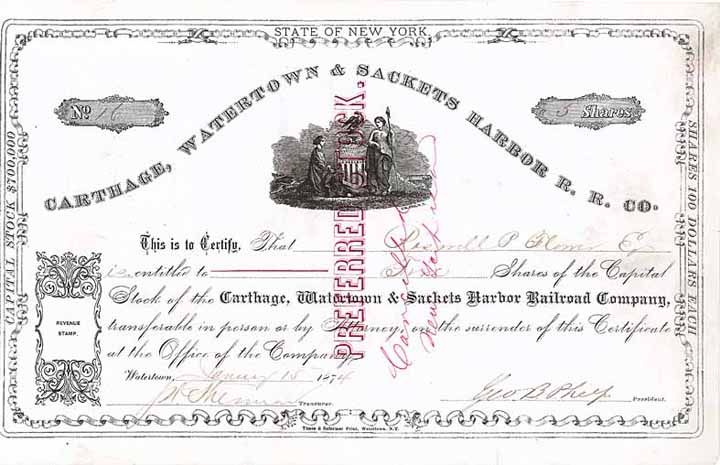 STATE OF NEW YORK.
No 16
5 Shares
CARTHAGE, WATERTOWN & SACKETS HARBOR R. R. CO.
CAPITAL STOCK $700,000
SHARES 100 DOLLARS EACH
PREFERRED STOCK.
This is to Certify, That Roswell P. Flower Esq
is entitled to Five Shares of the Capital
Stock of the Carthage, Watertown & Sackets Harbor Railroad Company,
transferable in person or by Attorney, on the surrender of this Certificate
at the Office of the Company
REVENUE
STAMP.
Watertown, January 15 1874
Treasurer.
Geo B Phelps President.
Times & Reformer Print, Watertown, N.Y.
Cancelled